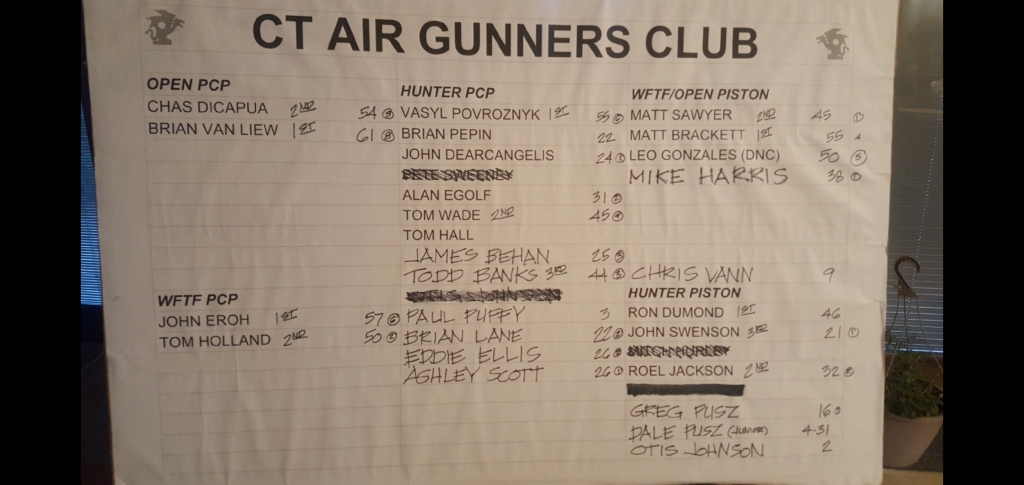 CT AIR GUNNERS CLUB
OPEN PCP
CHAS DICAPUA 2ND 54
BRIAN VAN LIEW 1ST 61
WFTF PCP
JOHN EROH 1ST 57
TOM HOLLAND 2ND 50
HUNTER PCP
VASYL POVROZNYK 1ST 55
BRIAN PEPIN 22
JOHN DEARCANGELIS 24
PETE SWEENEY
ALAN EGOLF 31
TOM WADE 2ND 45
TOM HALL
JAMES BEHAN 25
TODD BANKS 3RD 44
PAUL PUFFY 3
BRIAN LANE 22
EDDIE ELLIS 26
ASHLEY SCOTT 26
WFTF/OPEN PISTON
MATT SAWYER 2ND 45
MATT BRACKETT 1ST 55
LEO GONZALES (DNC) 50
MIKE HARRIS 38
CHRIS VANN 9
HUNTER PISTON
RON DUMOND 1ST 46
JOHN SWENSON 3RD 21
ROEL JACKSON 2ND 32
GREG PUSZ 16
DALE PUSZ (JUNIOR) 4-31
OTIS JOHNSON 2